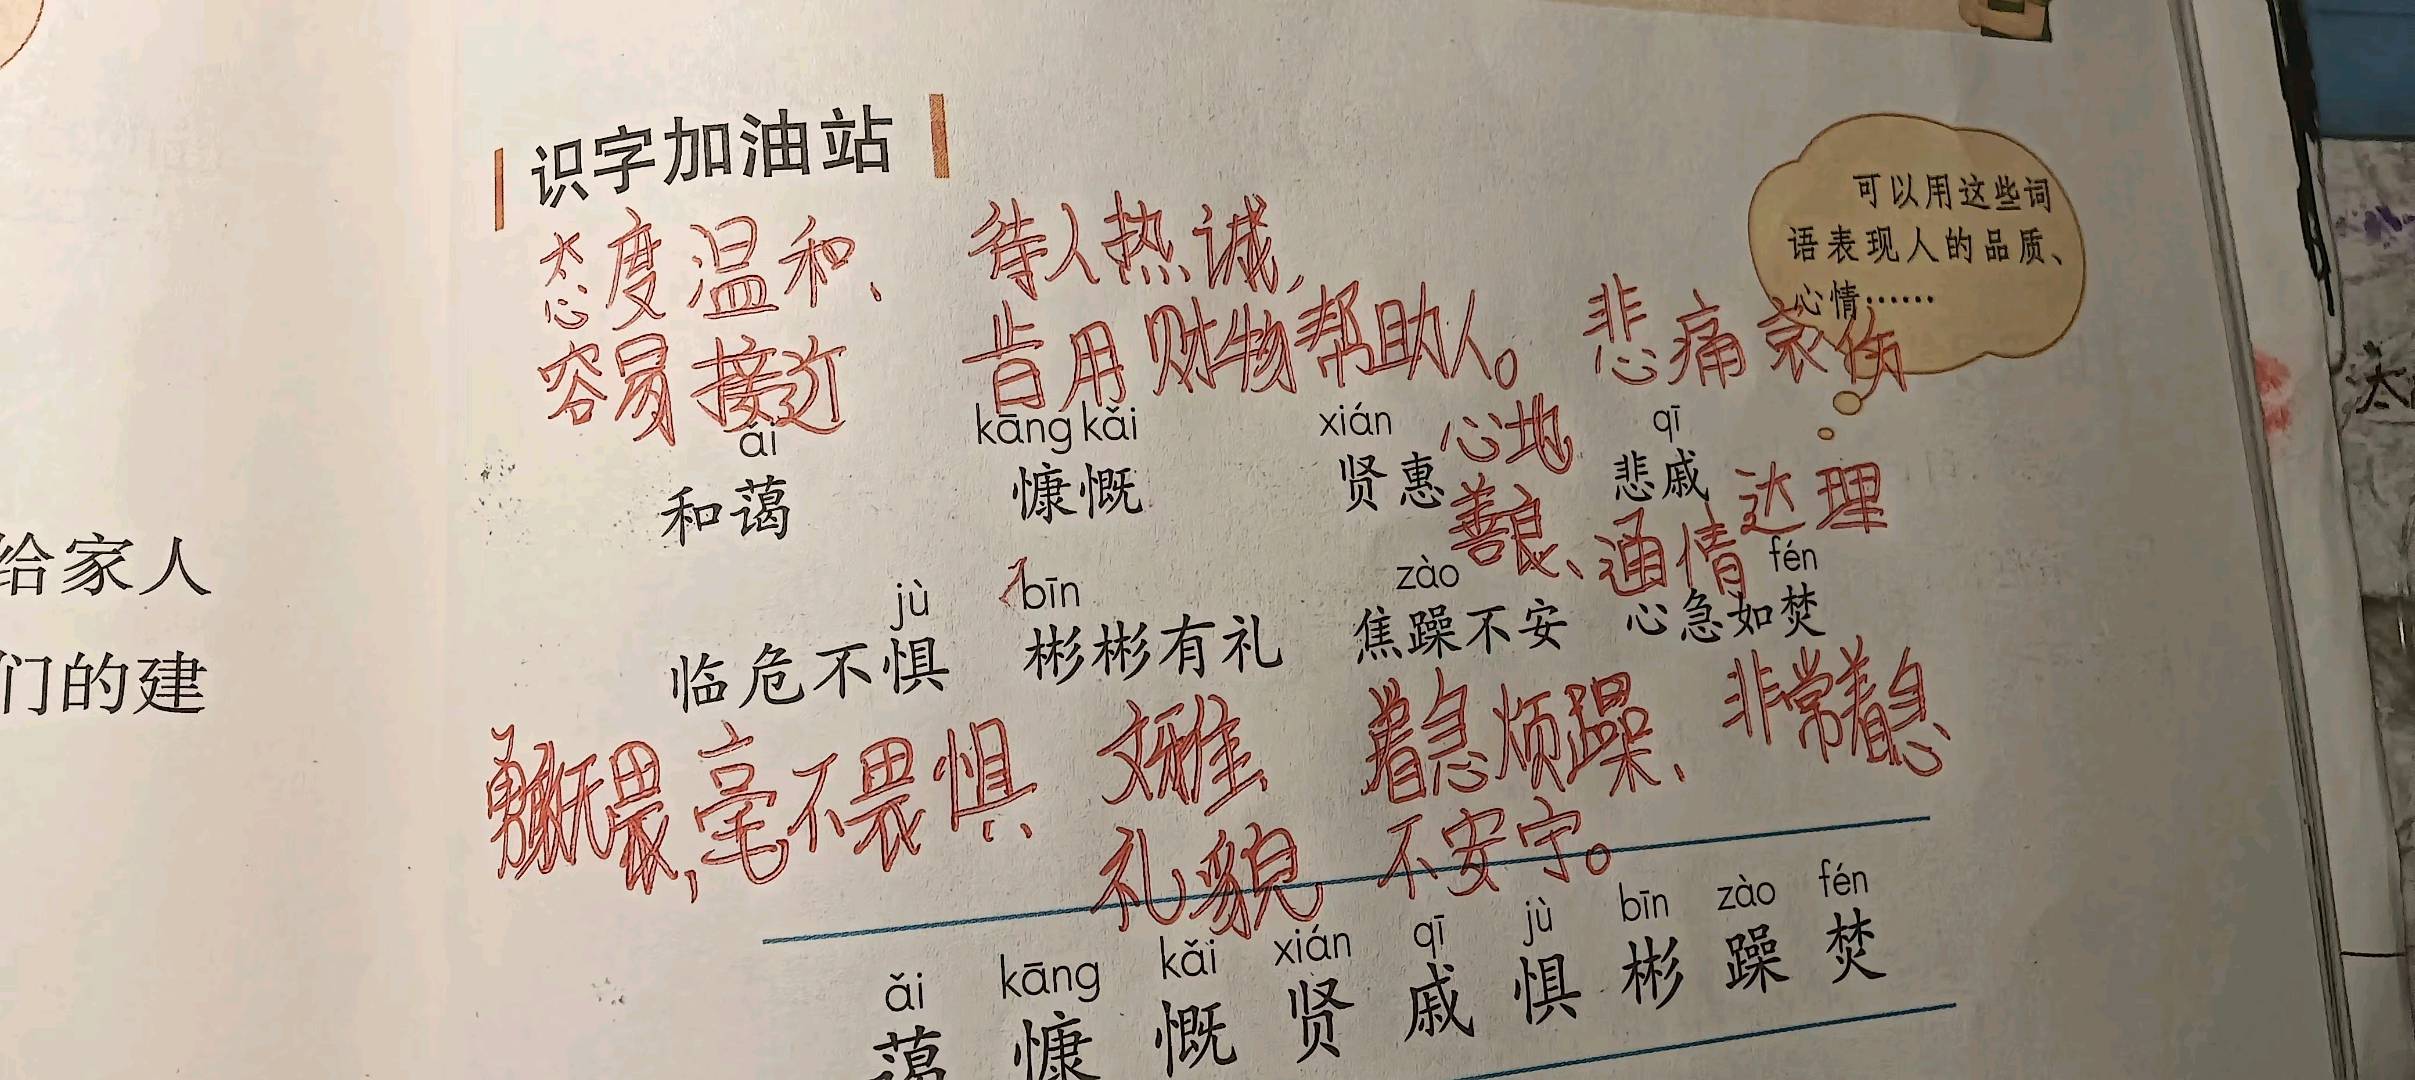 识字加油站
可以用这些词
语表现人的品质、
心情……
态度温和、
容易接近
待人热诚,
肯用财物帮助人。
悲痛哀伤
ǎi kāng kǎi xián qī
和蔼 慷慨 贤惠 悲戚
心地
善良、通情达理
jù bīn zào fén
临危不惧 彬彬有礼 焦躁不安 心急如焚
勇敢无畏,毫不畏惧
文雅
礼貌,
着急烦躁、
不安宁。
非常着急
ǎi kāng kǎi xián qī jù bīn zào fén
蔼 慷 慨 贤 戚 惧 彬 躁 焚
给家人
们的建